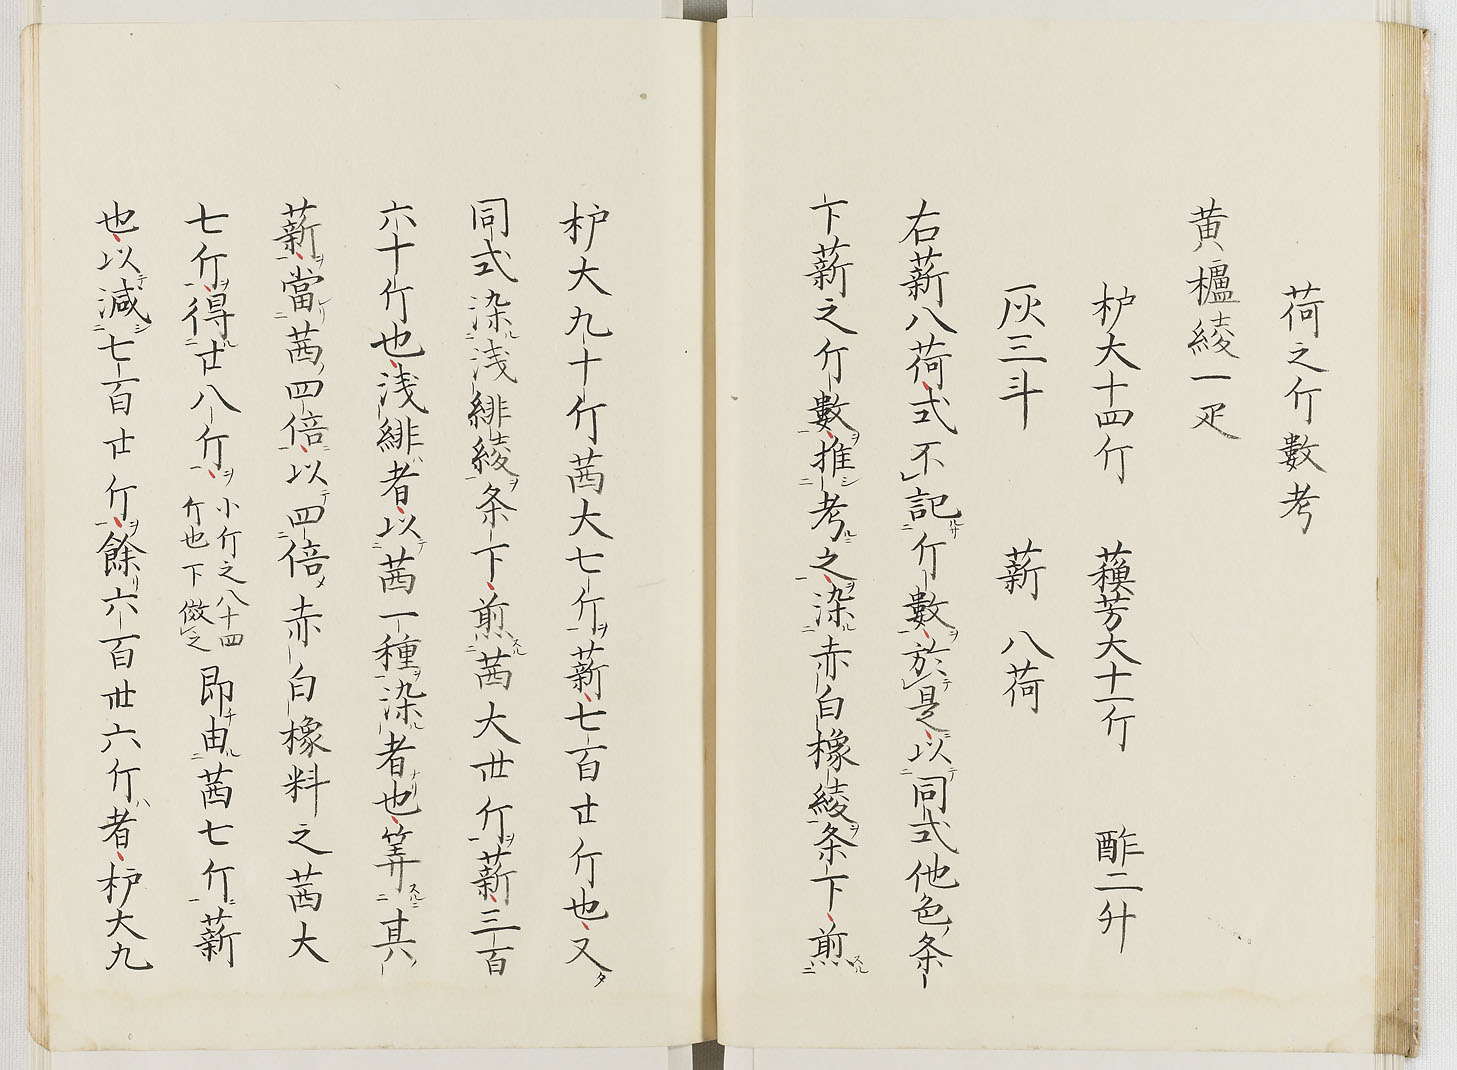 荷之斤數考
黄櫨綾一疋
枦大十四斤 蘓芳大十一斤 酢二升
灰三斗 薪八荷
右薪八荷式不記斤數於是以同式他色条
下薪之斤數推考之染赤白橡綾条下煎
枦大九十斤茜大七斤薪七百廿斤也又
同式染浅緋綾条下煎茜大卅斤薪三百
六十斤也浅緋者以茜一種染者也筭其
薪當茜四倍以四倍赤白橡料之茜大
七斤得廿八斤小斤之八十四斤也下倣之即由茜七斤薪
也以減七百廿斤餘六百卅六斤者枦大九